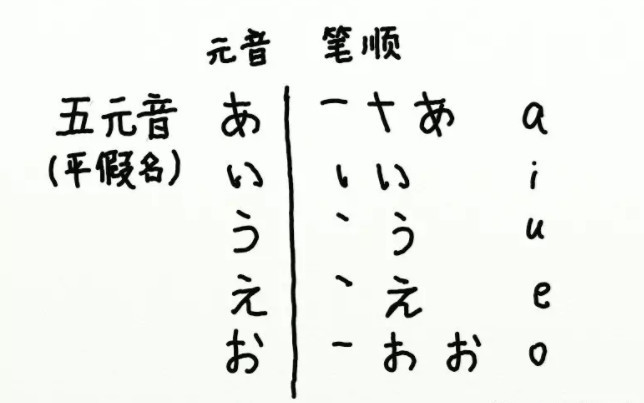 元音 笔顺
五元音 あ 一 十 あ a
(平假名) い ㇏ い i
う 丶 う u
え 丶 え e
お 一 お お o